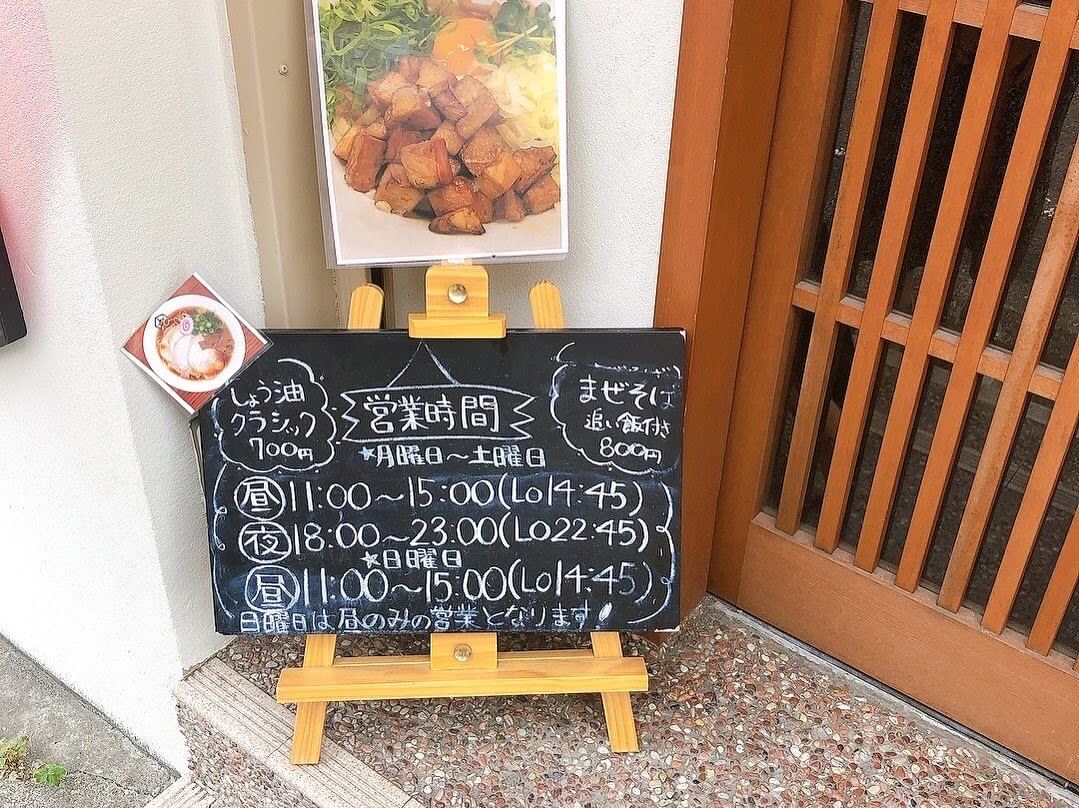 しょう油
クラシック
700円
営業時間
まぜそば
追い飯付き
800円
★月曜日～土曜日
昼 11:00～15:00(LO14:45)
夜 18:00～23:00(LO22:45)
★日曜日
昼 11:00～15:00(LO14:45)
日曜日は昼のみの営業となります!